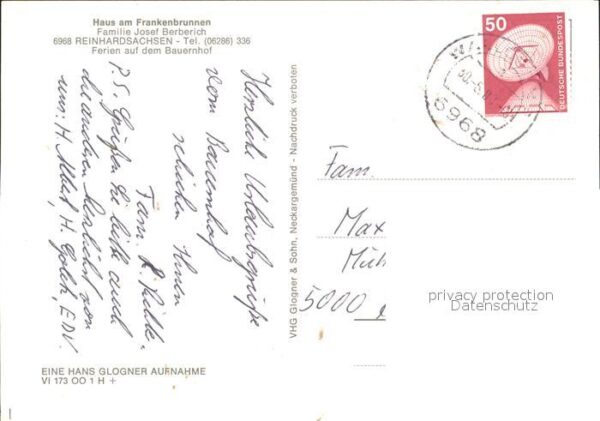 Haus am Frankenbrunnen
Familie Josef Berberich
6968 REINHARDSACHSEN - Tel. (06286) 336
Ferien auf dem Bauernhof
Herzliche Urlaubsgrüße
vom Bauernhof
schicken Ihnen
Fam.
P.S. Grüßen Sie bitte auch
die anderen herzlichst von
uns: H. H. EDV.
EINE HANS GLOGNER AUFNAHME
VI 173 OO 1 H +
VHG Glogner & Sohn, Neckargemünd - Nachdruck verboten
50
DEUTSCHE BUNDESPOST
6968
Fam.
Max
Müh
5000
privacy protection
Datenschutz